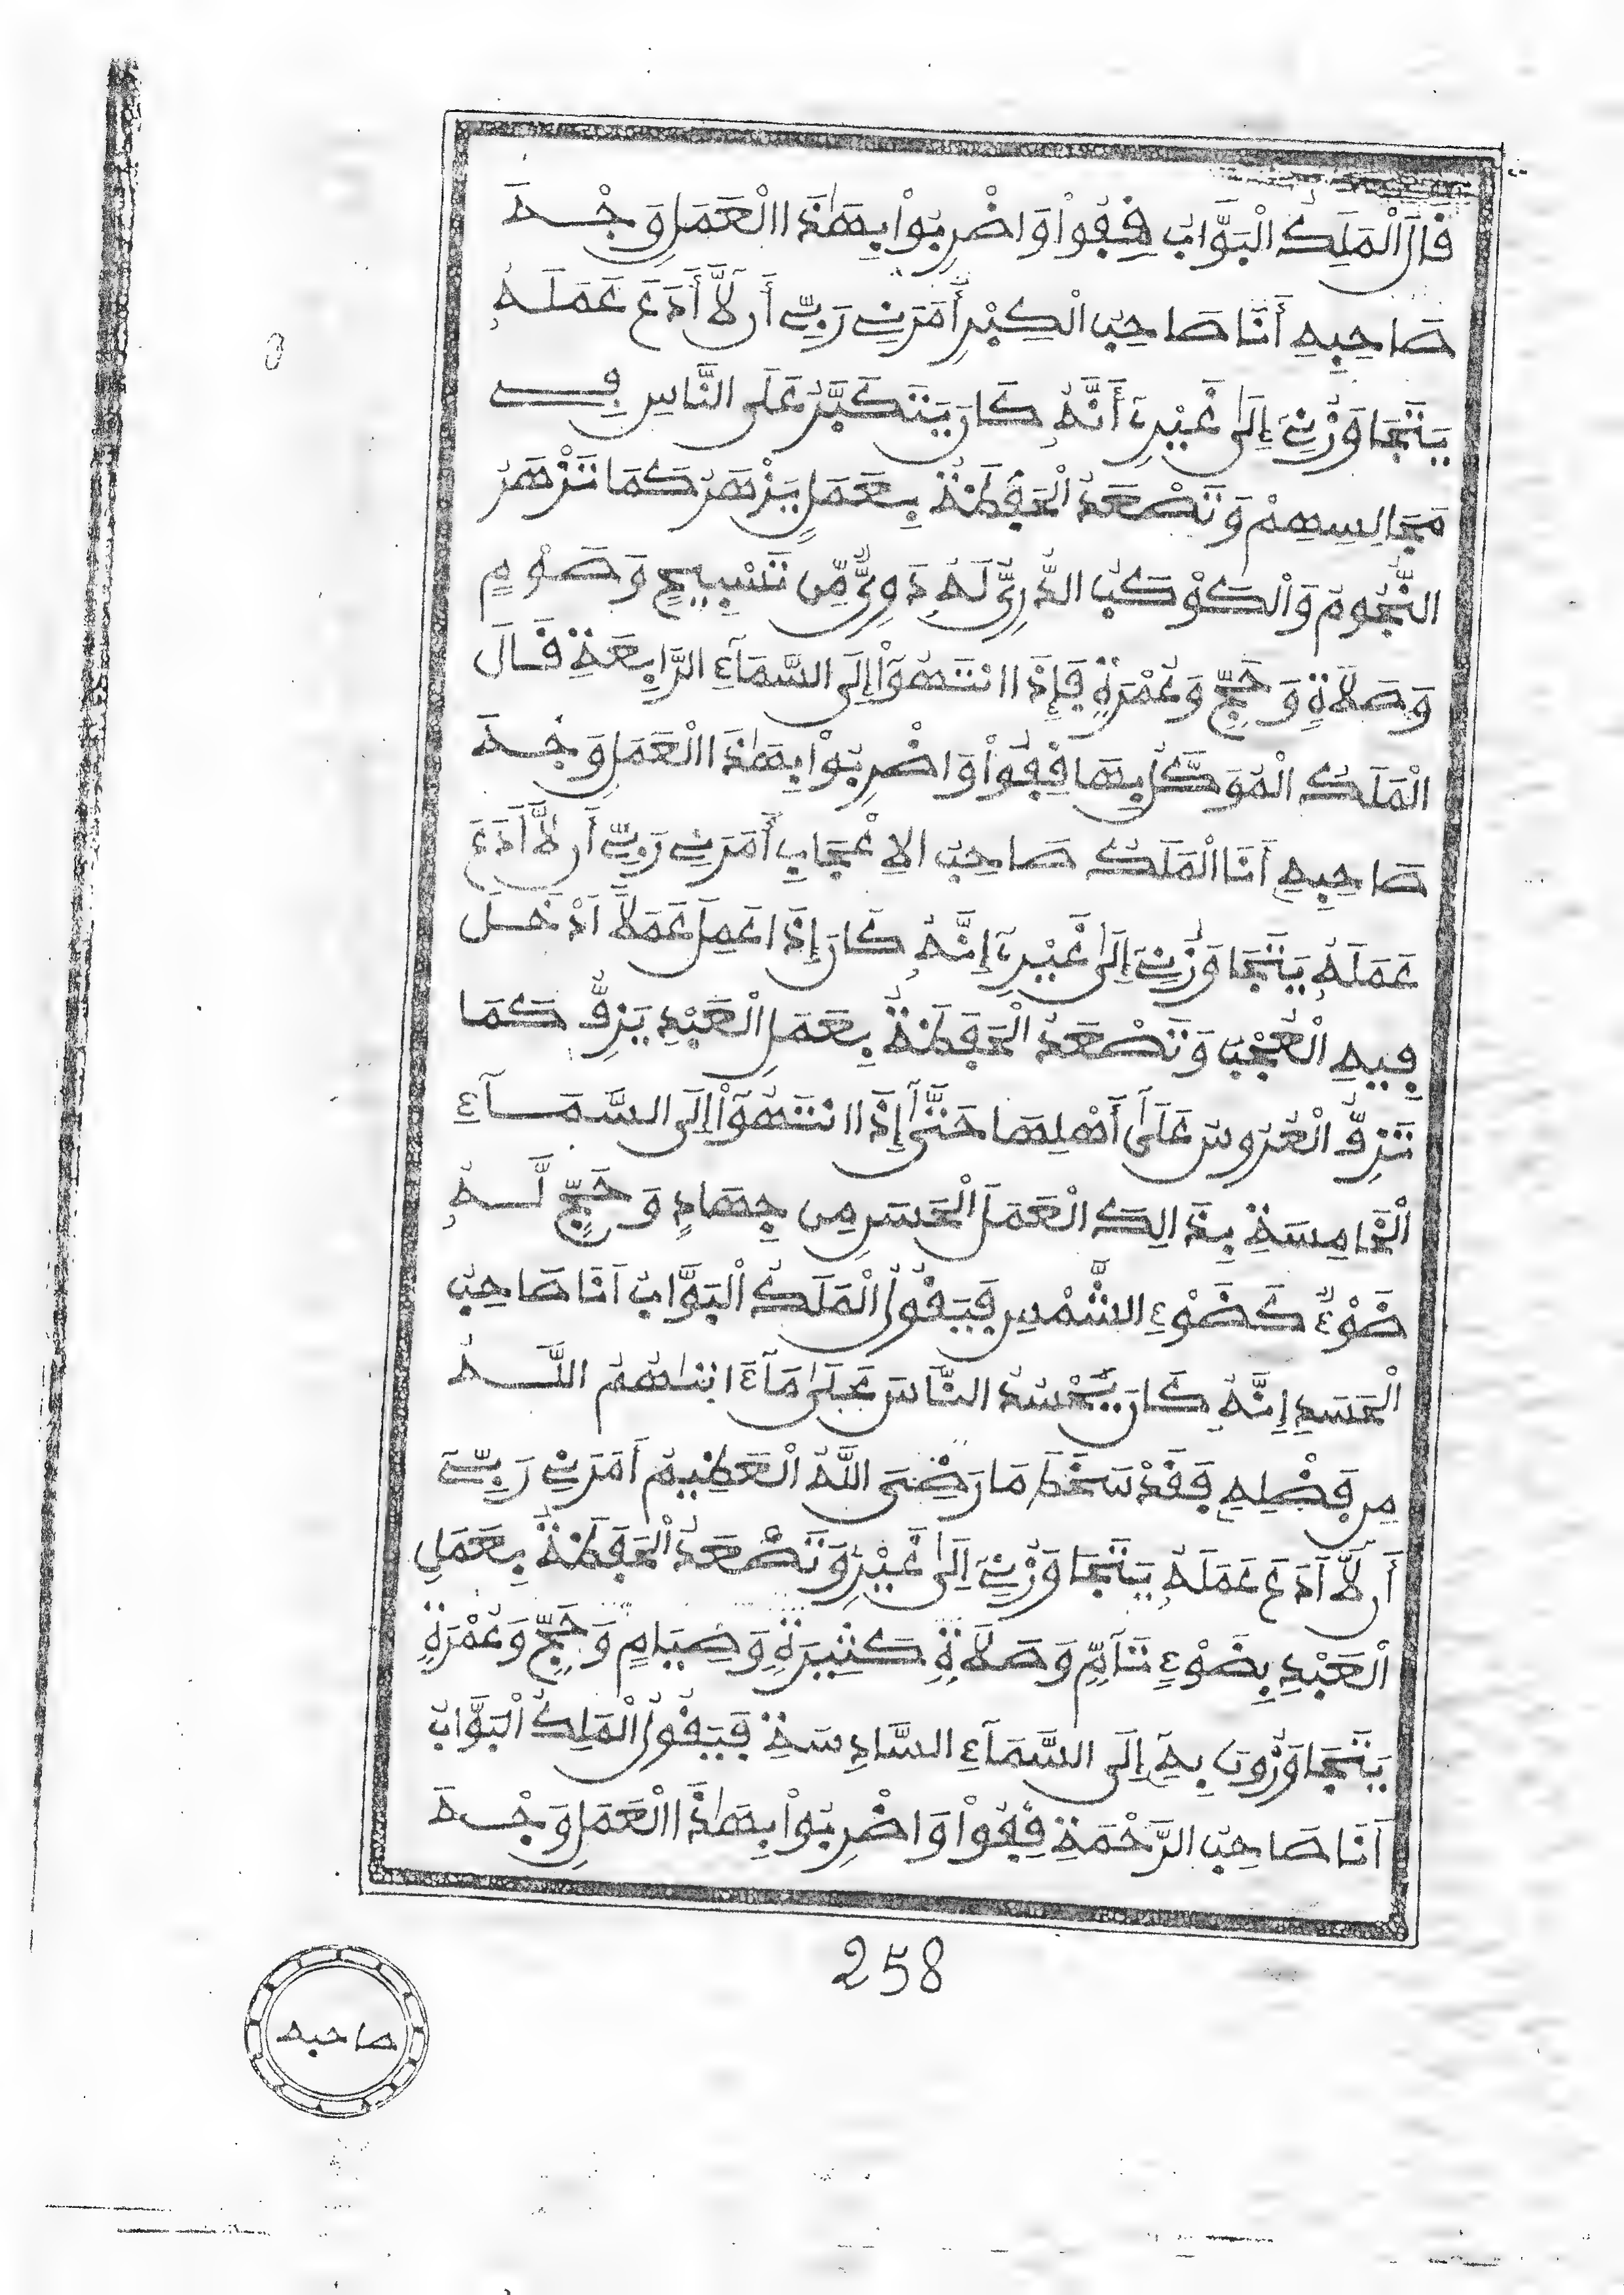 قَالَ الْمَلِكُ الْبَوَّابُ قِفُواْ وَاضْرِبُواْ بِهَٰذَا الْعَمَلِ وَجْهَ
صَاحِبِهِ أَنَا صَاحِبُ الْكِبْرِ أَمَرَنِي رَبِّي أَن لَّا أَدَعَ عَمَلَهُ
يَتَجَاوَزُنِي إِلَىٰ غَيْرِي أَنَّهُ كَانَ يَتَكَبَّرُ عَلَى النَّاسِ فِي
مَجَالِسِهِمْ وَتَصْعَدُ الْحَفَظَةُ بِعَمَلٍ يَزْهَرُ كَمَا تَزْهَرُ
النُّجُومُ وَالْكَوْكَبُ الدُّرِّيُّ لَهُ دَوِيٌّ مِّن تَسْبِيحٍ وَصَوْمٍ
وَصَلَاةٍ وَحَجٍّ وَعُمْرَةٍ فَإِذَا انْتَهَوْاْ إِلَى السَّمَآءِ الرَّابِعَةِ قَالَ
الْمَلَكُ الْمُوَكَّلُ بِهَا قِفُواْ وَاضْرِبُواْ بِهَٰذَا الْعَمَلِ وَجْهَ
صَاحِبِهِ أَنَا الْمَلَكُ صَاحِبُ الِاعْجَابِ أَمَرَنِي رَبِّي أَن لَّا أَدَعَ
عَمَلَهُ يَتَجَاوَزُنِي إِلَىٰ غَيْرِي إِنَّهُ كَانَ إِذَا عَمِلَ عَمَلًا اَدْخَلَ
فِيهِ الْعُجْبَ وَتَصْعَدُ الْحَفَظَةُ بِعَمَلِ الْعَبْدِ يَزِفُّ كَمَا
تَزِفُّ الْعَرُوسُ عَلَىٰ أَهْلِهَا حَتَّىٰ إِذَا انْتَهَوْاْ إِلَى السَّمَآءِ
الْخَامِسَةِ بِذَالِكَ الْعَمَلِ الْحَسَنِ مِن جِهَادٍ وَحَجٍّ لَّهُ
ضَوْءٌ كَضَوْءِ الشَّمْسِ فَيَقُولُ الْمَلَكُ الْبَوَّابُ اَنَا صَاحِبُ
الْحَسَدِ إِنَّهُ كَانَ يَحْسُدُ النَّاسَ عَلَىٰ مَآ ءَاتَىٰهُمُ اللَّهُ
مِن فَضْلِهِ فَقَدْ سَخَطَ مَا رَضِيَ اللَّهُ الْعَظِيمُ أَمَرَنِي رَبِّي
أَن لَّا اَدَعَ عَمَلَهُ يَتَجَاوَزُنِي إِلَىٰ غَيْرِي وَتَصْعَدُ الْحَفَظَةُ بِعَمَلِ
الْعَبْدِ بِضَوْءٍ تَآمٍّ وَصَلَاةٍ كَثِيرَةٍ وَصِيَامٍ وَحَجٍّ وَعُمْرَةٍ
يَتَجَاوَزُونَ بِهِ إِلَى السَّمَآءِ السَّادِسَةِ فَيَقُولُ الْمَلِكُ الْبَوَّابُ
اَنَا صَاحِبُ الرَّحْمَةِ قِفُواْ وَاضْرِبُواْ بِهَٰذَا الْعَمَلِ وَجْهَ
258
صاحبه